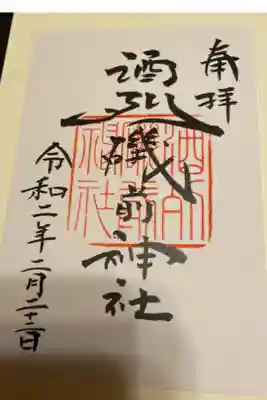 奉拝
酒列磯前神社
酒列
磯前
神社
令和二年二月二十二日